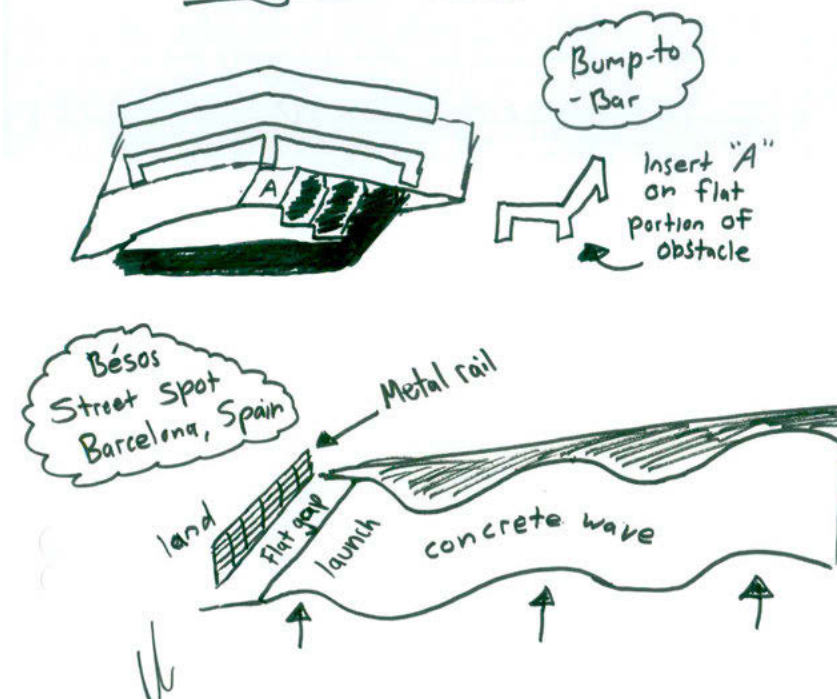 Bump-to
-Bar
A
Insert "A"
on flat
portion of
obstacle
Bésos
Street Spot
Barcelona, Spain
Metal rail
land
Flat gap
launch
concrete wave